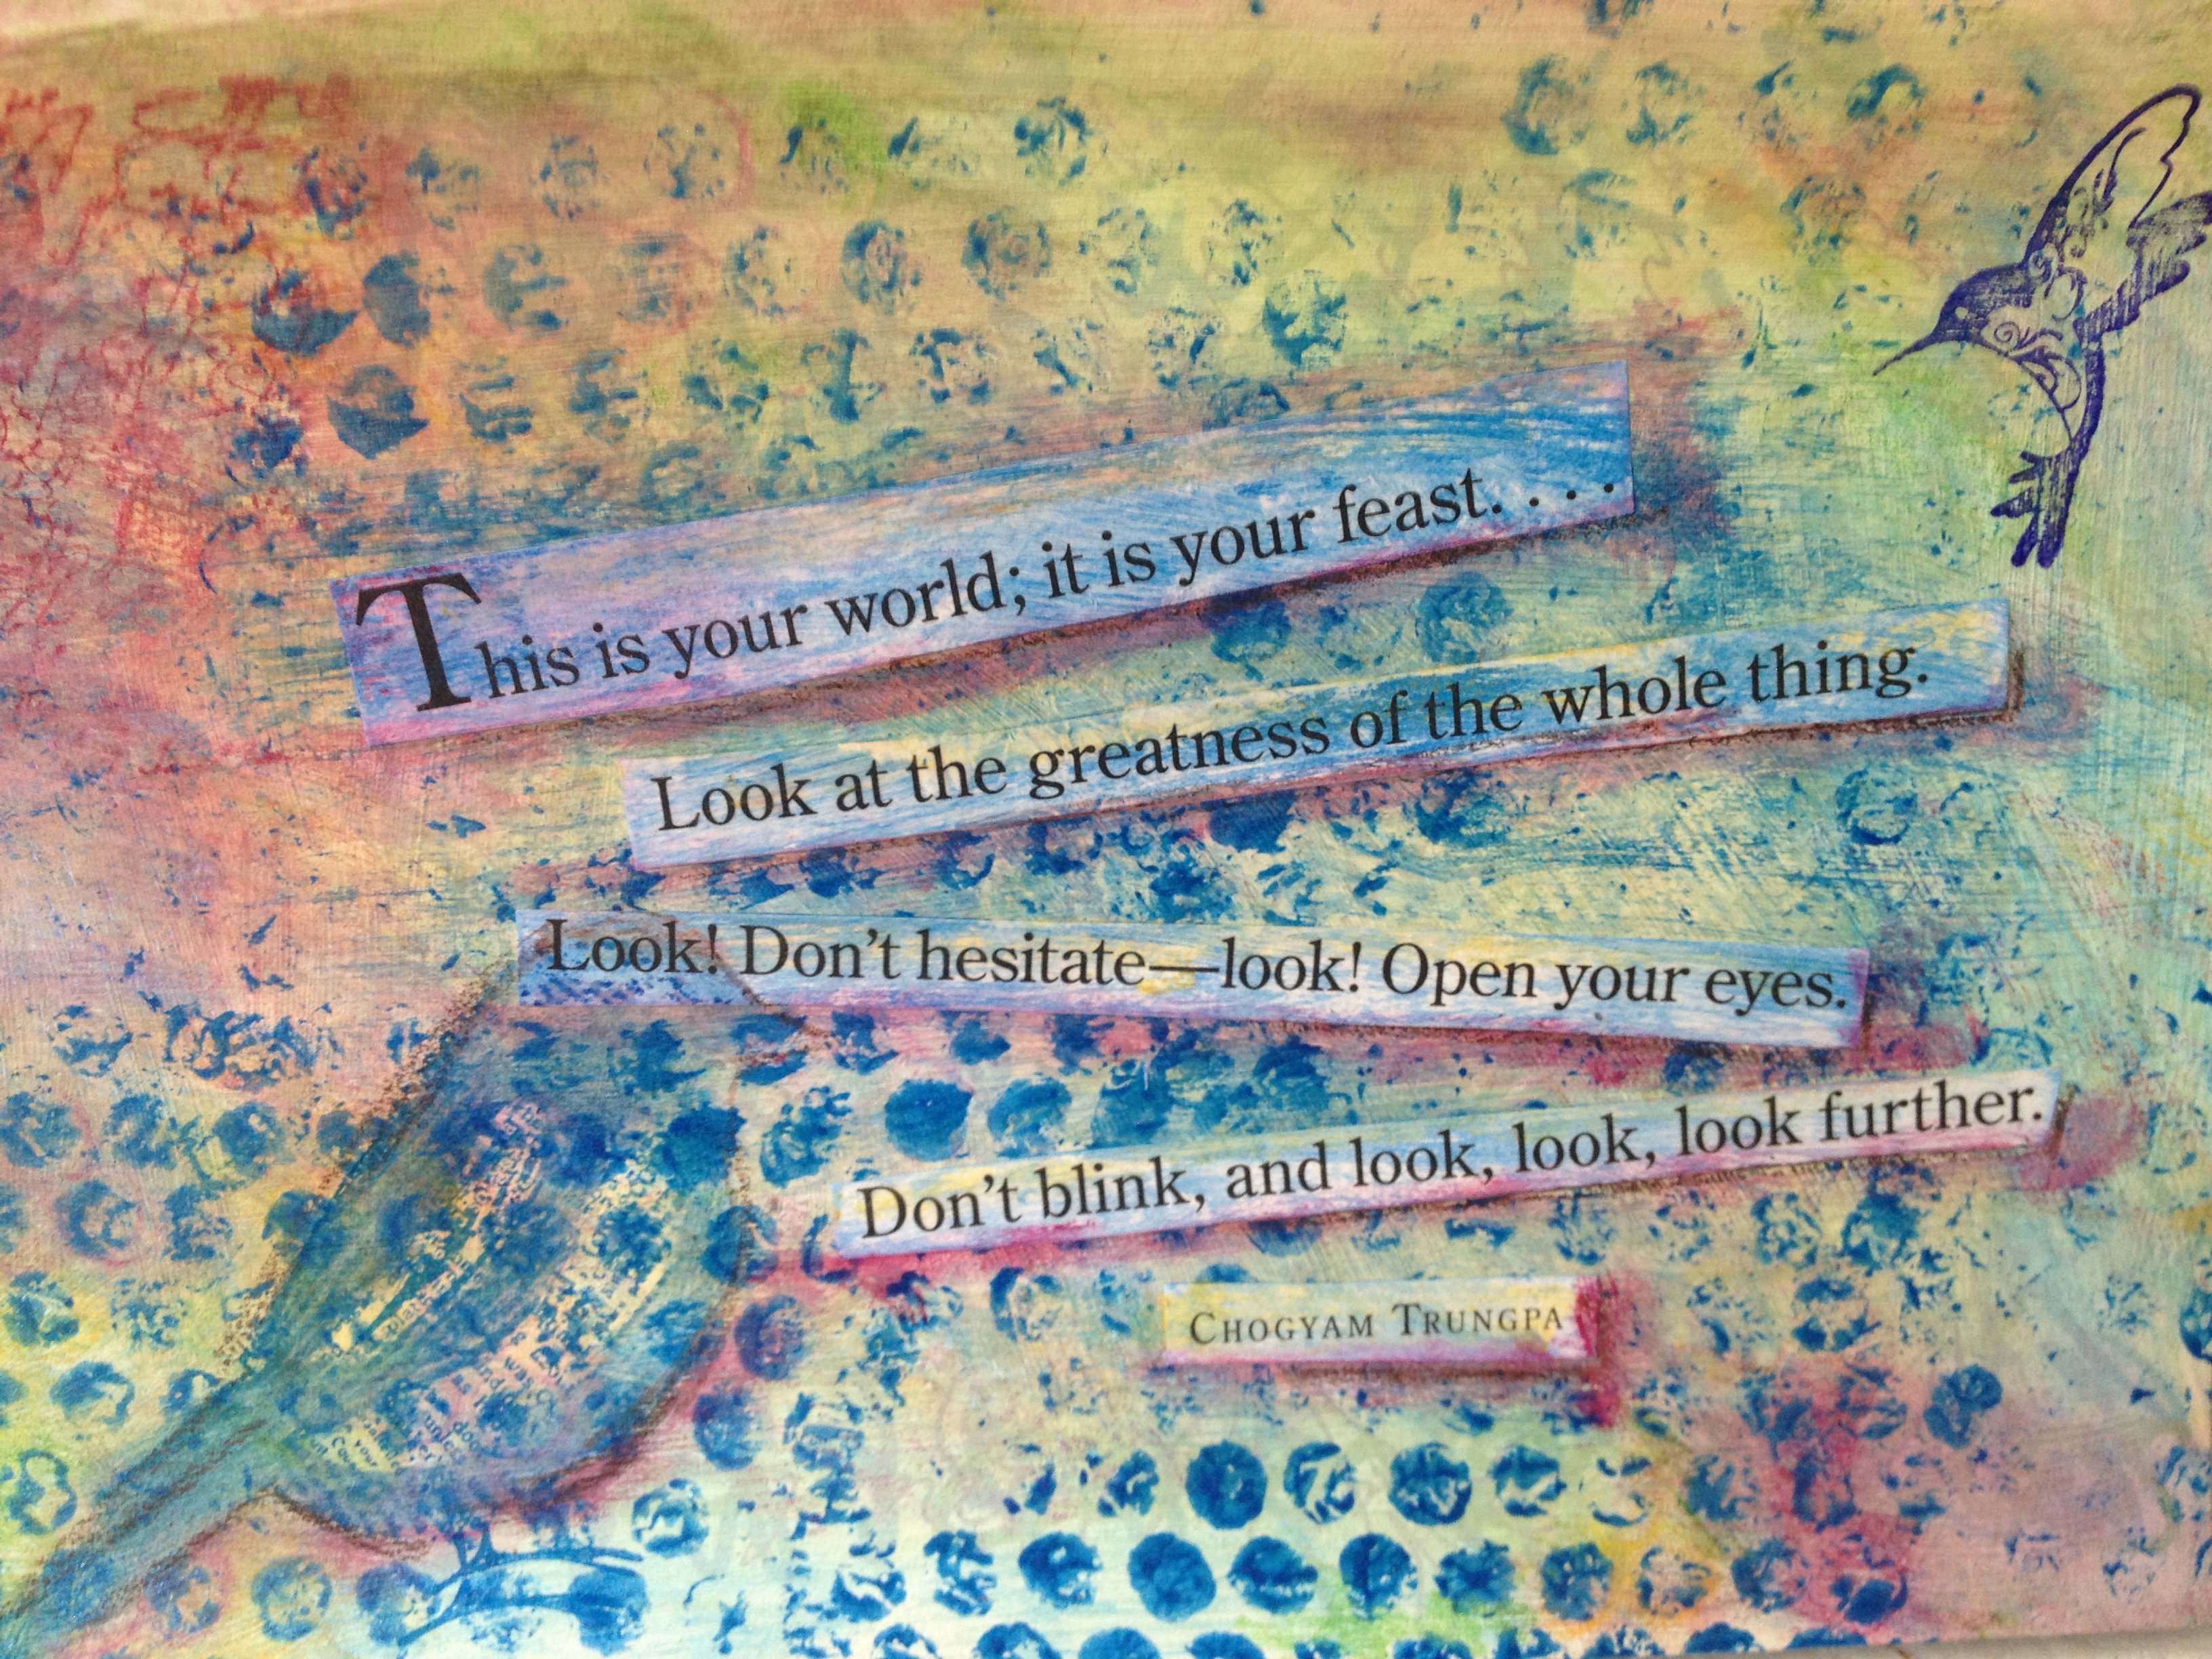 This is your world; it is your feast. . . .
Look at the greatness of the whole thing.
Look! Don't hesitate—look! Open your eyes.
Don't blink, and look, look, look further.
CHOGYAM TRUNGPA